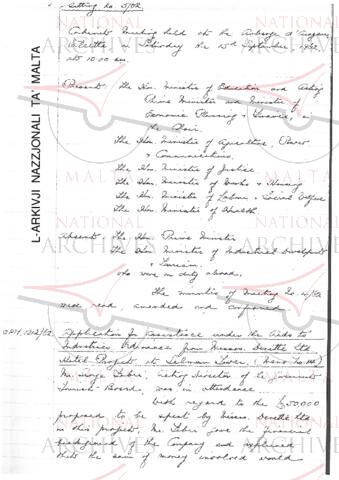 Sitting No. 5/62
Cabinet Meeting held at the Auberge d'Aragon,
Valletta, on Saturday the 15th September, 1962
at 10.00 am.
Present: The Hon. Minister of Education and Acting
Prime Minister and Minister of
Economic Planning & Finance, in
the Chair.
The Hon. Minister of Agriculture, Power
& Communications.
The Hon. Minister of Justice
The Hon. Minister of Works & Housing
The Hon. Minister of Labour & Social Welfare
The Hon. Minister of Health
Absent: The Hon. Prime Minister
The Hon. Minister of Industrial Development
& Tourism,
who were on duty abroad.
The minutes of Meeting No. 4/62
were read, amended and confirmed
OPM. 1212/62 Application for Assistance under the Aids to
Industries Ordinance from Messrs
Hotel Project at Selmun
Mr. Fabri, Acting Director of
Tourist Board, was in attendance.
With regard to the £50,000
proposed to be spent by Messrs. Ltd
in this project, Mr. Fabri gave the financial
background of the Company and explained
that the sum of money involved would
L-ARKIVJI NAZZJONALI TA' MALTA
NATIONAL ARCHIVES
MALTA